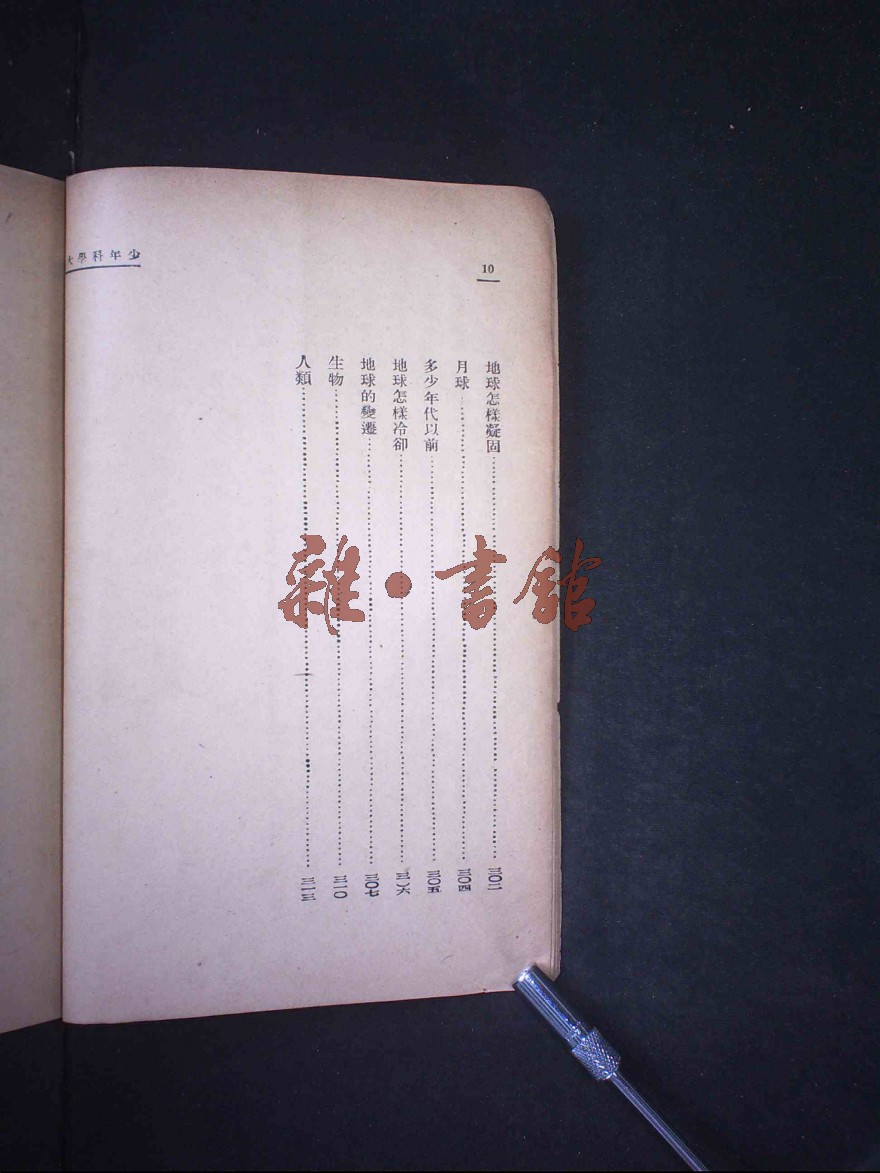 少年科學大
10
地球怎樣凝固……三〇二
月球……三〇四
多少年代以前……三〇五
地球怎樣冷卻……三〇六
地球的變遷……三〇七
生物……三一〇
人類……三一三
雜·書館